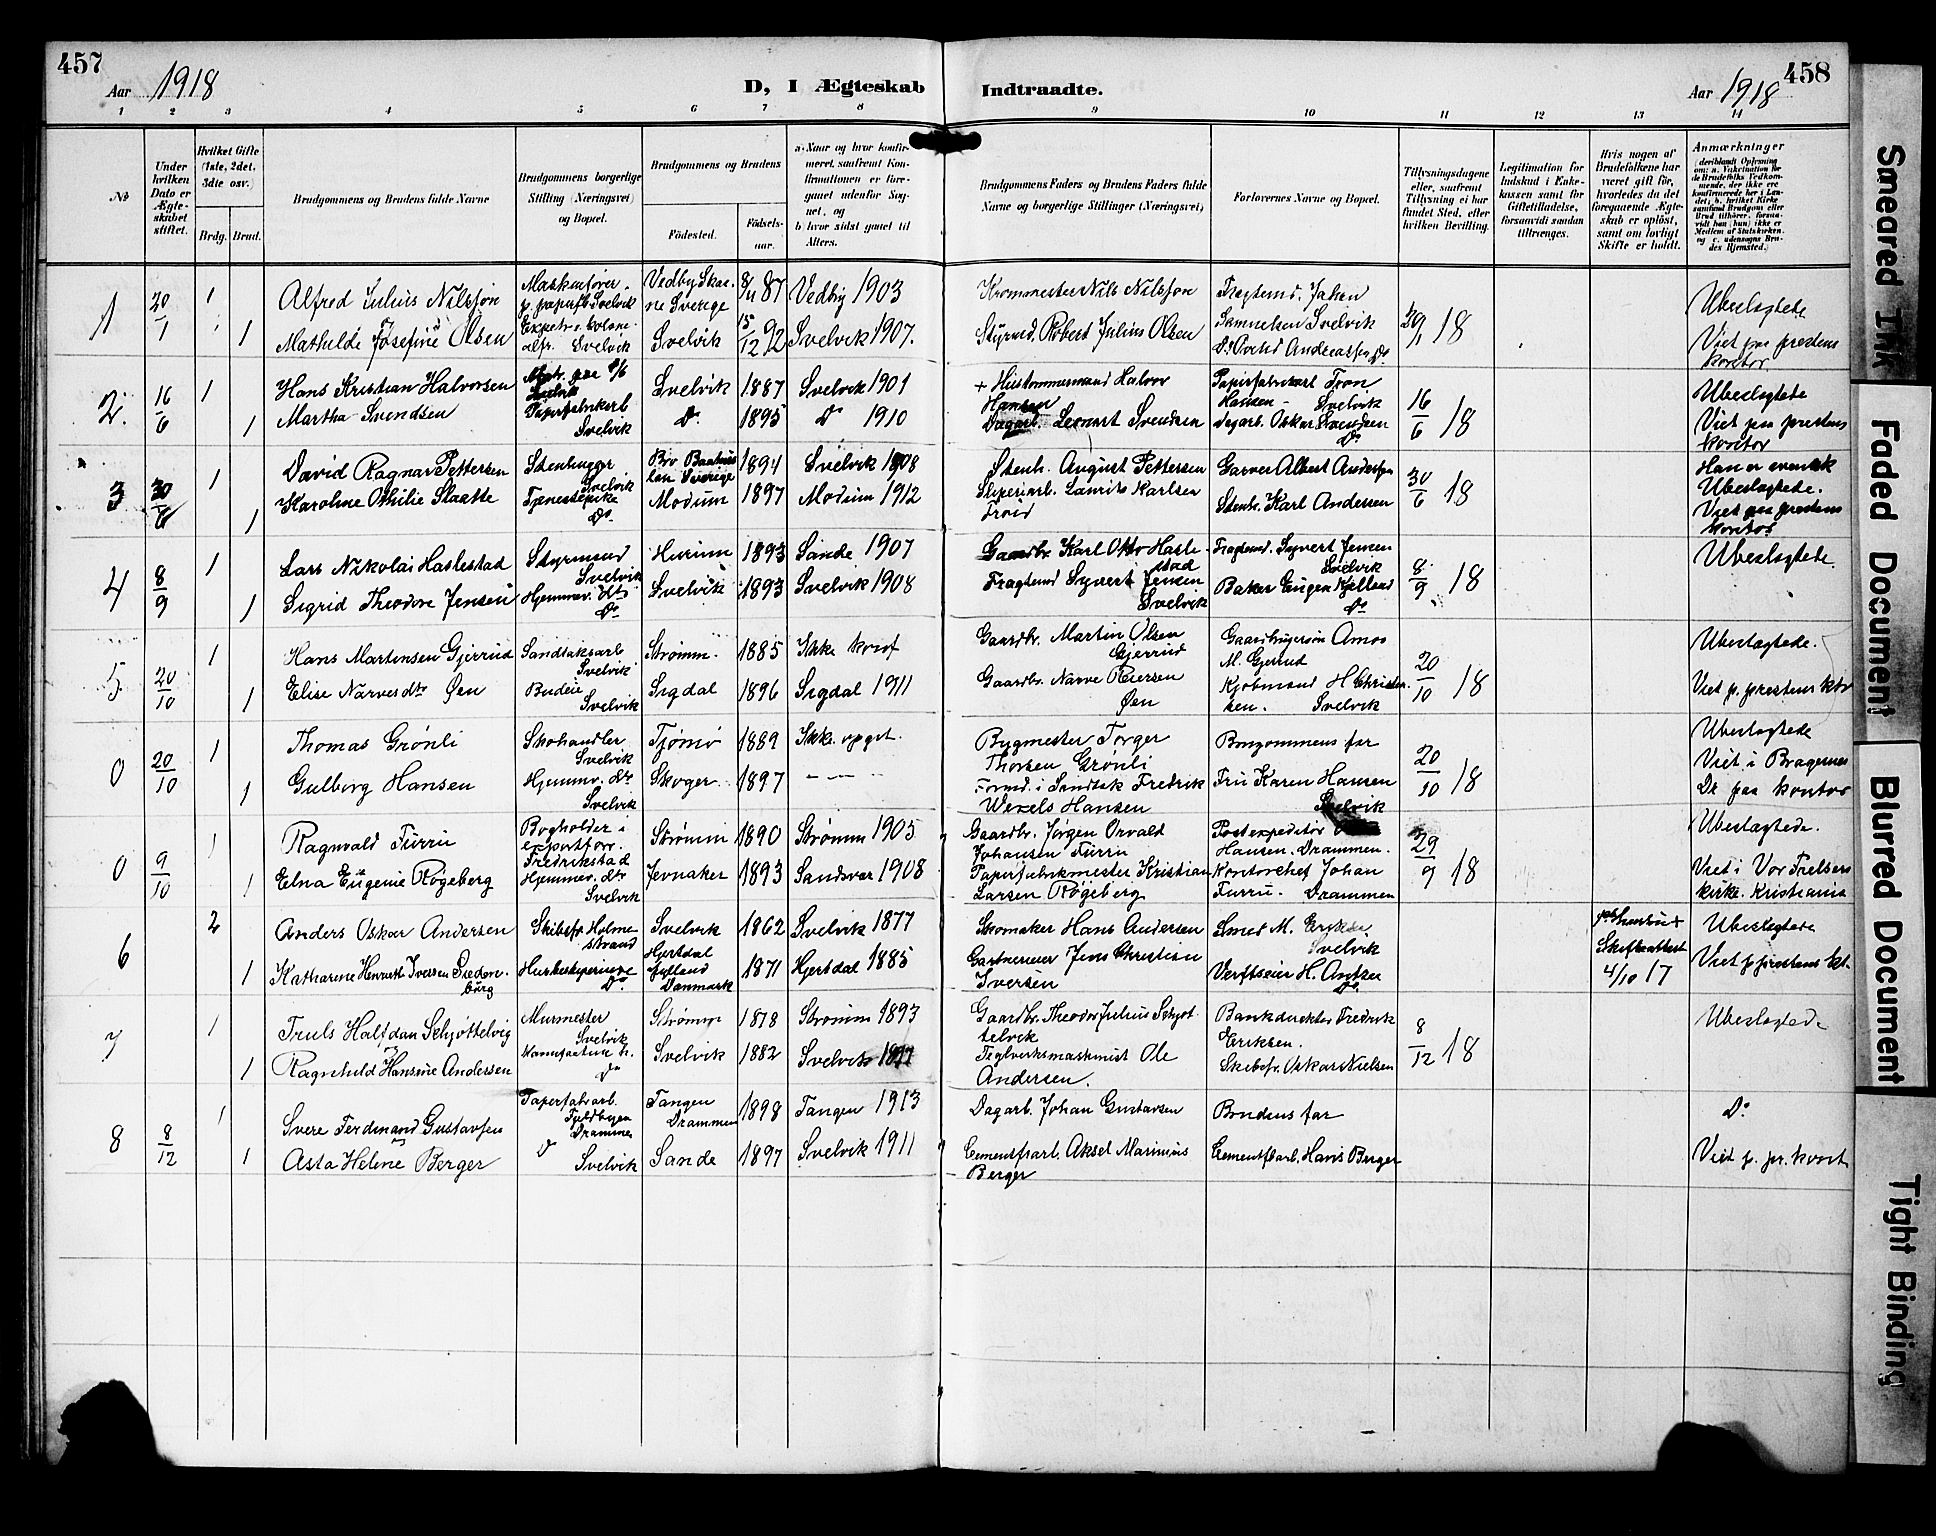 457
Aar 1918
D, I Ægteskab
Indtraadte.
Aar 1918
458
1 2 3 4 5 6 7 8 9 10 11 12 13 14
No
Under hvilken Dato er Ægteskabet stiftet.
Hvilket Gifte (1ste, 2det, 3die osv.)
Brdg. Brud.
Brudgommens og Brudens fulde Navne
Brudgommens borgerlige Stilling (Næringsvei) og Bopæl.
Brudgommens og Brudens
Fødested.
Fødselsaar.
a. Naar og hvor konfirmeret, saafremt Konfirmationen er foregaaet udenfor Sognet, og
b. hvor sidst gaaet til Alters.
Brudgommens Faders og Brudens Faders fulde Navne og borgerlige Stillinger (Næringsvei)
Forlovernes Navne og Bopæl.
Tillysningsdagene eller, saafremt Tillysning ei har fundet Sted, efter hvilken Bevilling.
Legitimation for Indskud i Enkekassen samt for Giftetilladelse, forsaavidt saadan tiltrænges.
Hvis nogen af Brudefolkene har været gift før, hvorledes da det foregaaende Ægteskab er opløst, samt om lovligt Skifte er holdt.
Anmærkninger
1 20/1 1 Alfred Julius Nilsson Vedby Skaane Sverige 8/11 87 Vedby 1903
1 Mathilde Josefine Olsen Svelvik 15/12 92 Svelvik 1907.
Nils Nilsson
Styrmd. Robert Julius Olsen
Samuelsen Svelvik
18
Ubeslegtede
Viet paa prestens kontor
2. 16/6 1 Hans Kristian Halvorsen Svelvik 1887 Svelvik 1901
1 Martha Svendsen Papirfabrikarb Svelvik Do. 1895 Do 1910
Hansen
Dagarb. Lennart Svendsen
Hansen - Svelvik
Dagarb. Oskar Svendsen Do
16/6 18
Ubeslegtede
Viet paa prestens kontor
3 30/6 1 David Ragnar Pettersen Stenhugger Svelvik Sverige 1894 Svelvik 1908
1 Karoline Othilie Slaatte Tjenestepike Do. Modum 1897 Modum 1912
Stenh. August Pettersen
Sliperiarb. Laurits Karlsen
Garver Albert Andersen
Stenh. Karl Andersen
30/6 18
Han er svensk
Ubeslegtede.
Viet paa prestens kontor
4 8/9 1 Lars Nikolai Haslestad Styrmand Svelvik Hurum 1893 Sande 1907
1 Sigrid Theodore Jensen Hjemmev. dtr Do Svelvik 1893 Svelvik 1908
Gaardbr. Karl Otto Haslestad
Fragtemd Syvert Jensen Svelvik
Fragtemd. Syvert Jensen Svelvik
Baker Eugen Kjelland Do
8/9 18
Ubeslegtede.
5. 20/10 1 Hans Martensen Gjerrud Sandtaksarb Svelvik Strømm. 1885 Ikke konf
1 Elise Narvesdtr Øen Budeie Svelvik Sigdal 1896 Sigdal 1911
Gaardbr. Martin Olsen Gjerrud
Gaardbr. Narve Øen
Gaardbrugersøn Amos M. Gjerrud
Kjøbmand H Christensen. Svelvik
20/10 18
Ubeslegtede.
Viet p. prestens ktr
0 20/10 1 Thomas Grönli Skohandler Svelvik Tjømø 1889 Ikk. opget.
1 Gulborg Hansen Hjemmev. dtr Svelvik Skoger 1897 - - -
Bygmester Torger Thorsen Grönli
Formd. i Sandtak Fredrik Wexels Hansen
Brugommens far
Fru Karen Hansen Svelvik
20/10 18
Ubeslegtede
Viet i Bragernes
Dr paa kontor
0 9/10 1 Ragnvald Furru Bogholder i Fredrikstad Strømm 1890 Strømm 1905
1 Elna Eugenie Røgeberg Hjemmev. dtr Svelvik Jevnaker 1893 Sandsvær 1908
Gaardbr. Jørgen Orvald Johansen Furru
Papirfabrikmester Kristian Larsen Røgeberg
Postexpeditør Hansen. Drammen.
Kontorchef Johan Furru. Drammen
29/9 18
Ubeslegtede.
Viet i Vor Frelsers kirke. Kristiania
6 2 Anders Oskar Andersen Skibsfr. Holmestrand Svelvik 1862 Svelvik 1877
1 Katharene Iversen Husbestyrerinde Do Hjertdal Jylland Danmark 1871 Hjertdal 1885
Skomaker Hans Andersen
Gartnereier Jens Christian Iversen
Smed M. Eriksen Svelvik
Verftseier H. Antzen Do.
Skifteattest 4/10 17
Ubeslegtede
Viet p prestens kt.
7 1 Truls Halfdan Schjøttelvig Murmester Svelvik Strømm 1878 Strømm 1893
1 Ragnhild Hansine Andersen Do Svelvik 1882 Svelvik 1897
Gaardbr. Theodor Julius Schjøttelvik
Teglverksmaskinist Ole Andersen.
Bankdirektør Fredrik Eriksen.
Skibsfr. Oskar Nielsen
8/12 18
Ubeslegtede
8 8/12 1 Svere Ferdinand Gustavsen Papirfabarb. Drammen Tangen Drammen 1898 Tangen 1913
1 Asta Helene Berger Svelvik Sande 1897 Svelvik 1911
Dagarb. Johan Gustavsen
Cementfarb. Aksel Marinius Berger
Brudens far
Cementfarb. Hans Berger
Do
Viet p. pr. kont
Smeared Ink
Faded Document
Blurred Document
Tight Binding